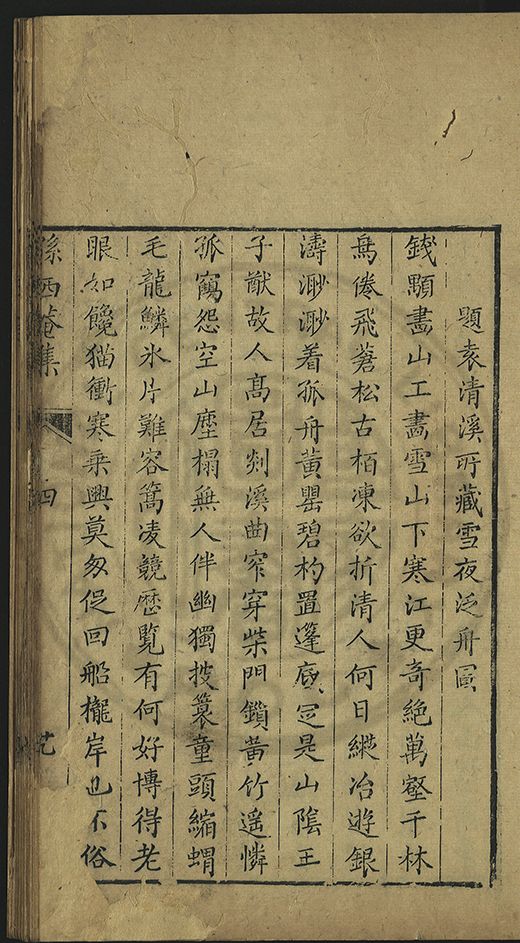 題袁清溪所藏雪夜泛舟圖
錢顋畵山工畵雪山下寒江更奇絕萬壑千林
鳥倦飛蒼松古栢凍欲折清人何日縱冶遊銀
濤渺渺着孤舟黃罌碧杓置篷底定是山陰王
子猷故人髙居剡溪曲窄穿柴門鎖黃竹遥憐
孤鶴怨空山塵榻無人伴幽獨披簑童頭縮蝟
毛龍鱗氷片難容篙凌競歴覧有何好博得老
眼如饞猫衝寒乗興莫匆促回船櫳岸也不俗
孫西菴集
四